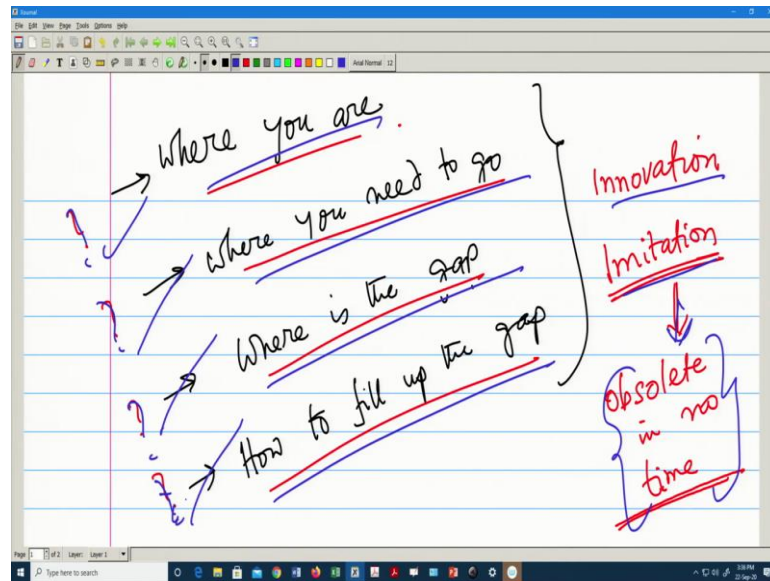 Xournal
File Edit View Page Tools Options Help
Arial Normal 12
where you are.
where you need to go
? where is the gap
? How to fill up the gap
?
?
Innovation
Imitation
obsolete
in no
time
Page 1 of 2 Layer: Layer 1
Type here to search
3:38 PM
22-Sep-20